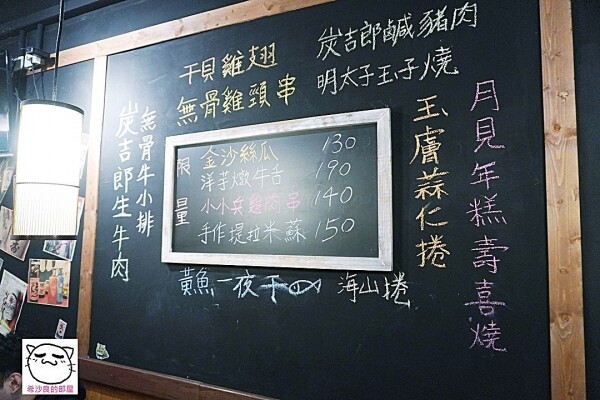 干貝雞翅
無骨雞頸串
炭吉郎鹹豬肉
明太子玉子燒
無骨牛小排
炭吉郎生牛肉
限量
金沙絲瓜 130
洋芋燉牛舌 190
小小兵雞肉串 140
手作提拉米蘇 150
玉膚蒜仁捲
月見年糕壽喜燒
黃魚一夜干
海山捲
希沙良的部屋